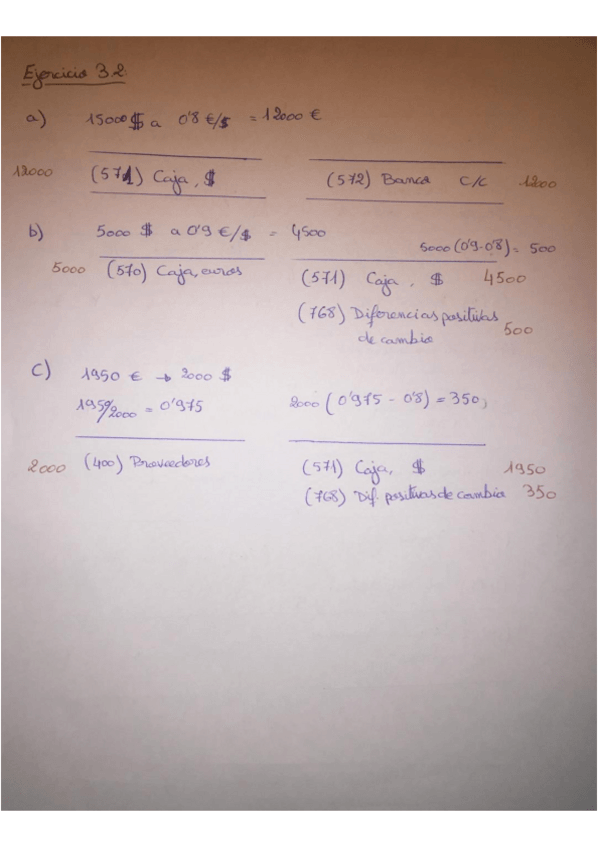 Ejercicio 3.2:
a) 15000 $ a 0'8 €/$ = 12000 €
12000 (571) Caja, $ (572) Banca c/c 1200
b) 5000 $ a 0'9 €/$ = 4500
5000 (0'9-0'8) = 500
5000 (570) Caja, euros (571) Caja, $ 4500
(768) Diferencias positivas
de cambio 500
c) 1950 € → 2000 $
1950/2000 = 0'975 2000 (0'975 - 0'8) = 350,
2000 (400) Proveedores (571) Caja, $ 1950
(768) Dif. positivas de cambio 350